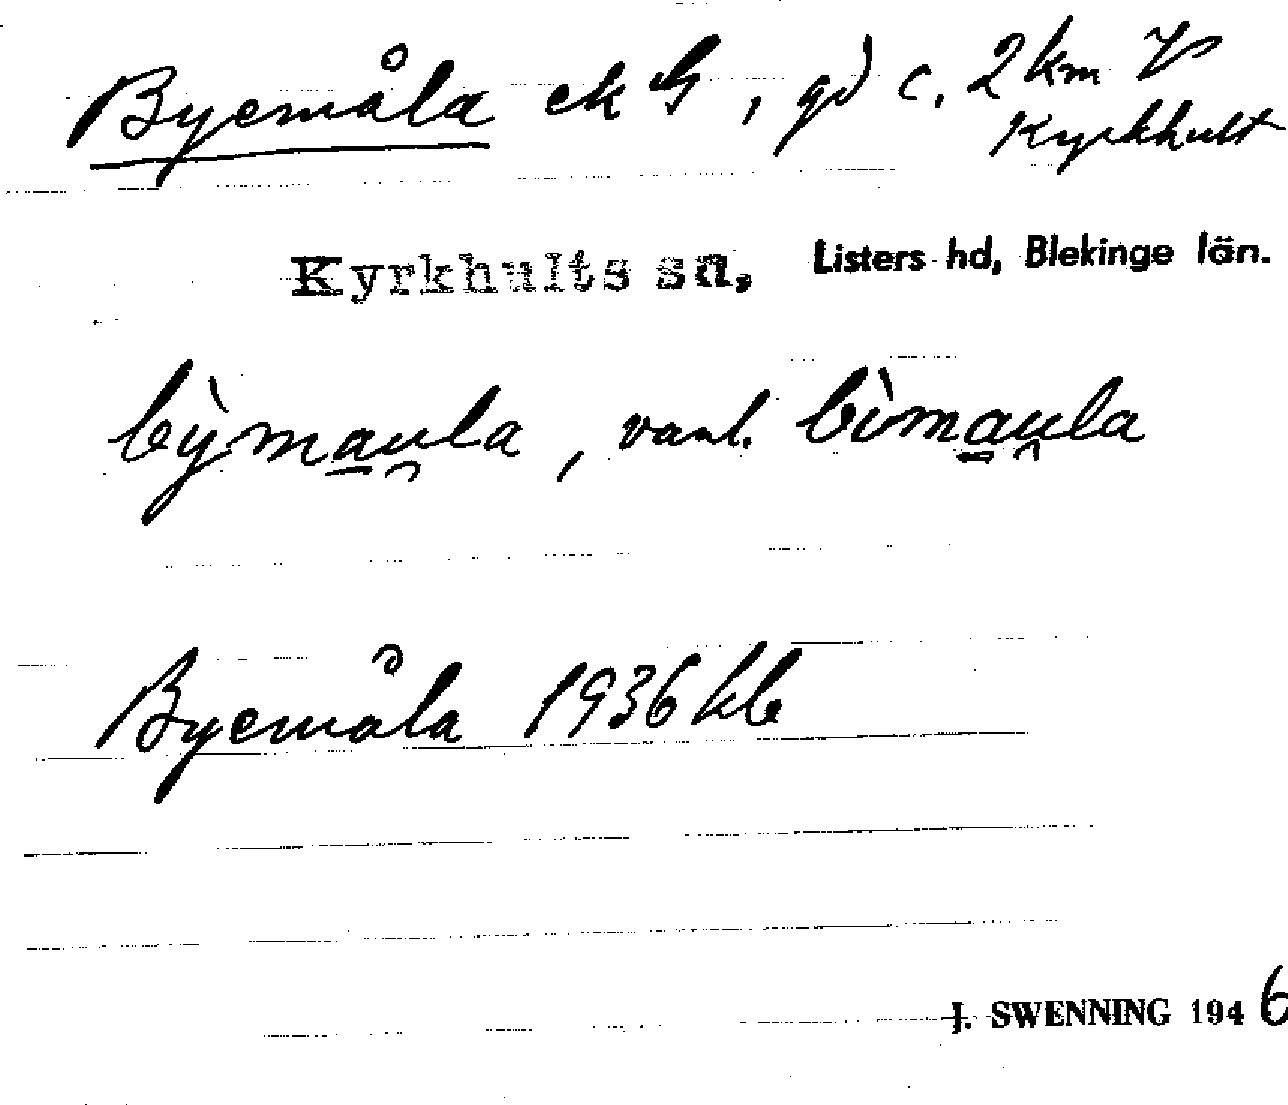 Byemåla ek G, gd c. 2 km V
Kyrkhult
Kyrkhults sn, Listers hd, Blekinge län.
bỳmau̯la, vanl. bìmau̯la
Byemåla 1936 kb
J. SWENNING 1946